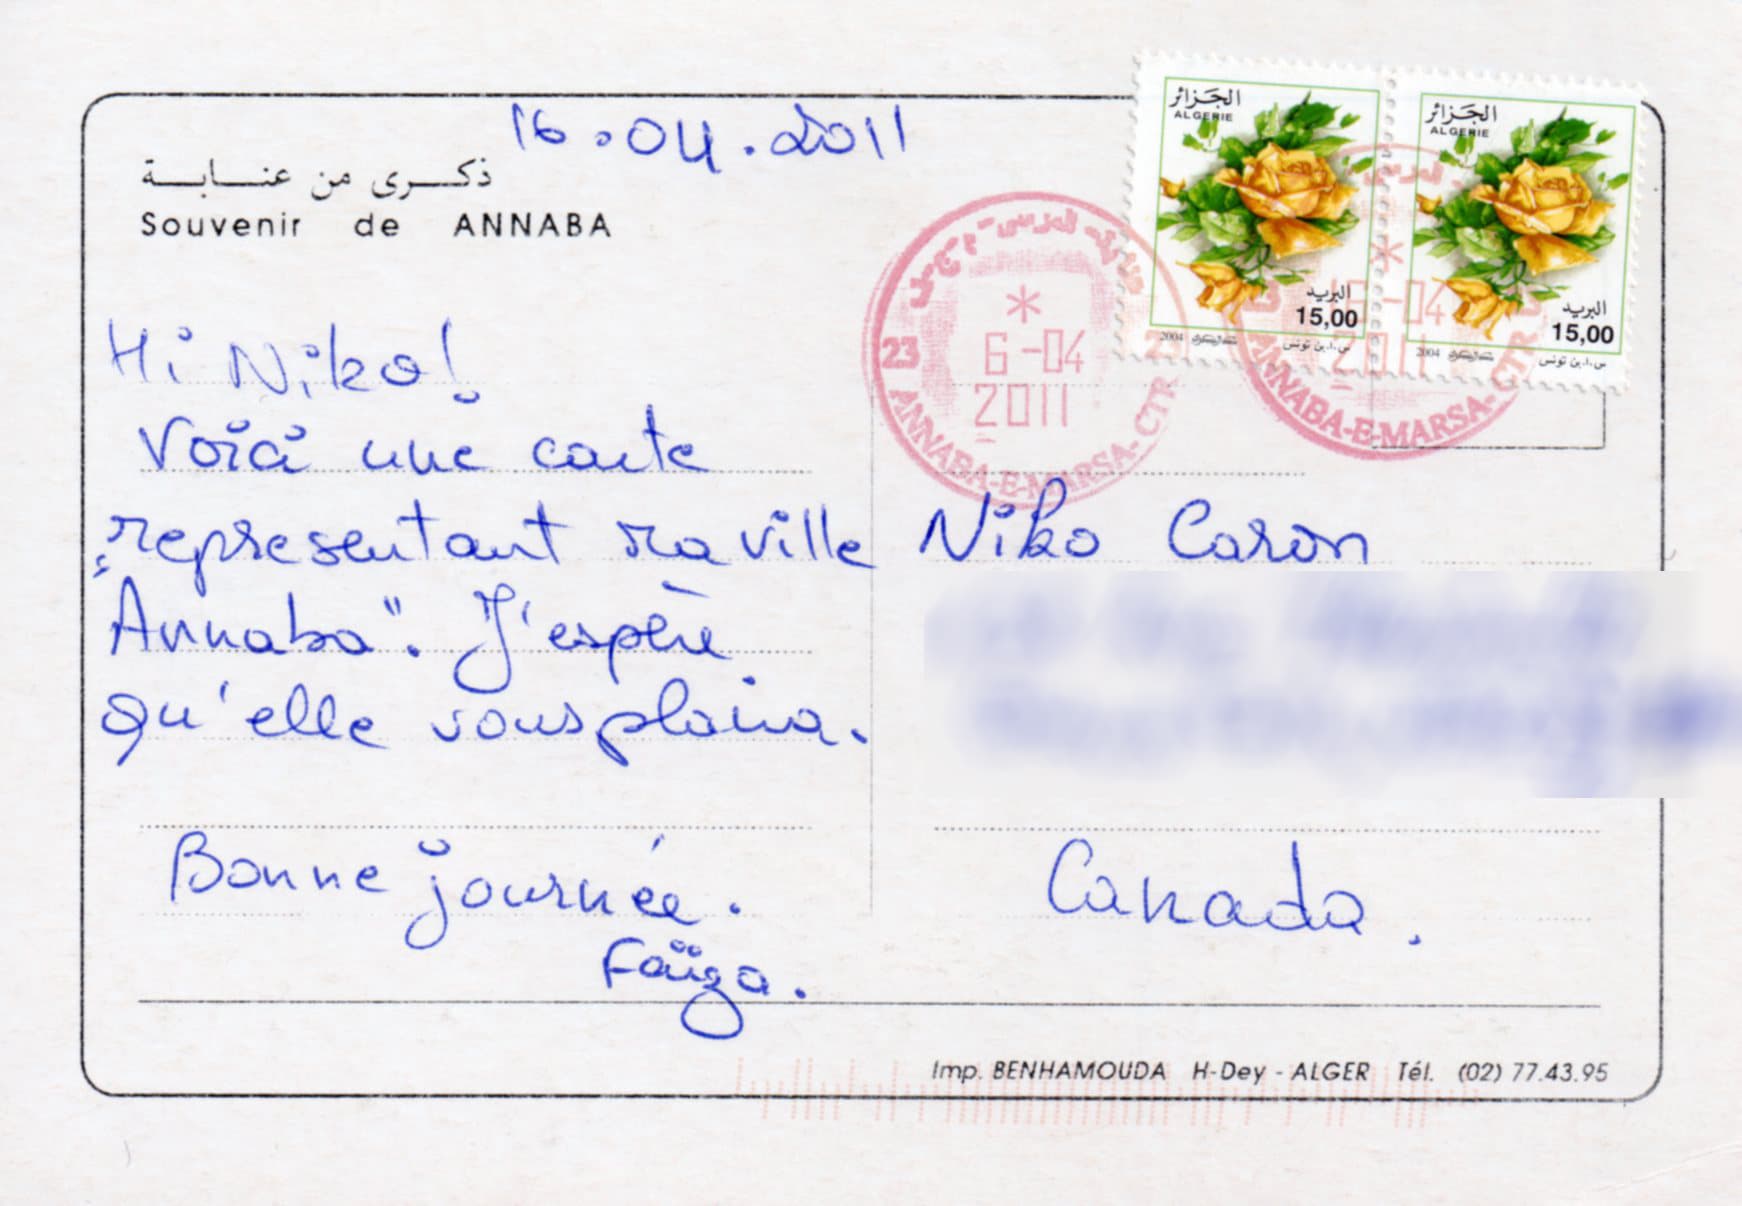 16.04.2011
ذكرى من عنابة
Souvenir de ANNABA
Hi Niko!
Voici une carte
représentant ma ville
"Annaba". J'espère
qu'elle vous plaira.
Bonne journée.
Faïza.
الجزائر
ALGERIE
البريد
15,00
2004
س.ا.بن تونس
الجزائر
ALGERIE
البريد
15,00
2004
س.ا.بن تونس
23
6-04
2011
23
ANNABA-E-MARSA-CTR
-04
2011
ANNABA-E-MARSA-CTR
Niko Caron
Canada.
Imp. BENHAMOUDA H-Dey - ALGER Tél. (02) 77.43.95